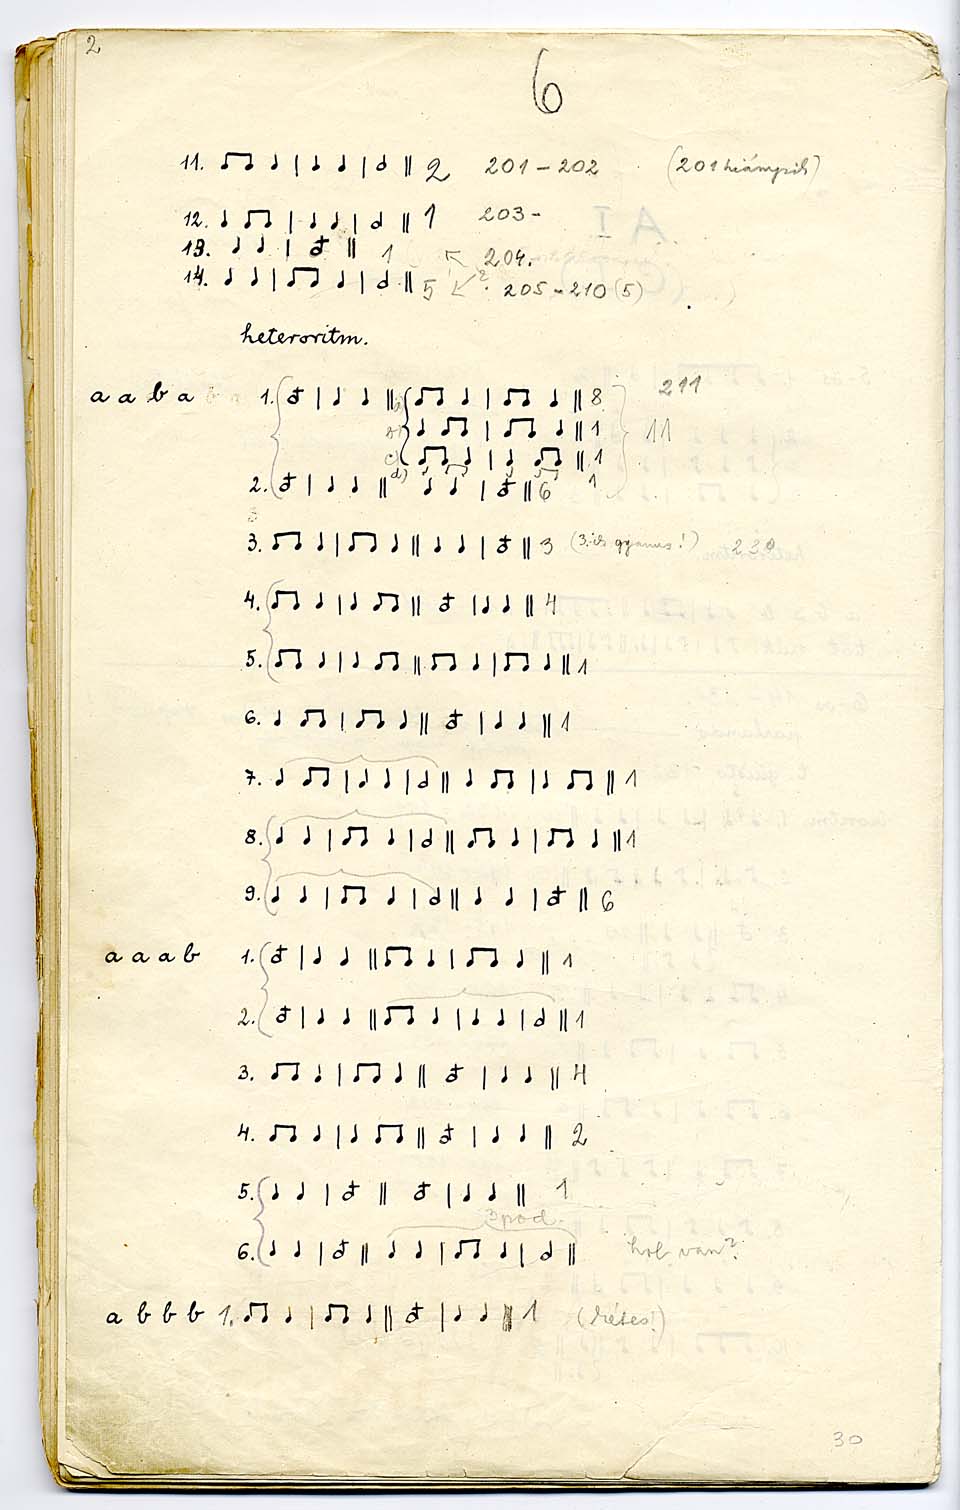 2
6
11. ♫ ♩ | ♩ ♩ | 𝅗𝅥 || 2 201–202 (201 hiányzik)
12. ♩ ♫ | ♩ ♩ | 𝅗𝅥 || 1 203-
13. ♩ ♩ | || 1 204.
14. ♩ ♩ | ♫ ♩ | 𝅗𝅥 || 5 ? 205-210 (5)
heteroritm.
a a b a 1. | ♩ ♩ || ♫ ♩ | ♫ ♩ || 8 211
♩ ♫ | ♫ ♩ || 1 11
c) ♫ ♩ | ♩ ♫ || 1
d) 1
2. | ♩ ♩ || ♩ ♩ | || 6
3. ♫ ♩ | ♫ ♩ || ♩ ♩ | || 3
4. ♫ ♩ | ♩ ♫ || | ♩ ♩ || 4
5. ♫ ♩ | ♩ ♫ || ♫ ♩ | ♫ ♩ || 1
6. ♩ ♫ | ♫ ♩ || | ♩ ♩ || 1
7. ♩ ♫ | ♩ ♩ | 𝅗𝅥 || ♩ ♫ | ♩ ♫ || 1
8. ♩ ♩ | ♫ ♩ | 𝅗𝅥 || ♫ ♩ | ♫ ♩ || 1
9. ♩ ♩ | ♫ ♩ | 𝅗𝅥 || ♩ ♩ | || 6
a a a b 1. | ♩ ♩ || ♫ ♩ | ♫ ♩ || 1
2. | ♩ ♩ || ♫ ♩ | ♩ ♩ | 𝅗𝅥 || 1
3. ♫ ♩ | ♫ ♩ || | ♩ ♩ || 4
4. ♫ ♩ | ♩ ♫ || | ♩ ♩ || 2
5. ♩ ♩ | || | ♩ ♩ || 1
3pod.
6. ♩ ♩ | || ♩ ♩ | ♫ ♩ | 𝅗𝅥 || hol van?
a b b b 1. ♫ ♩ | ♫ ♩ || | ♩ ♩ || 1
30